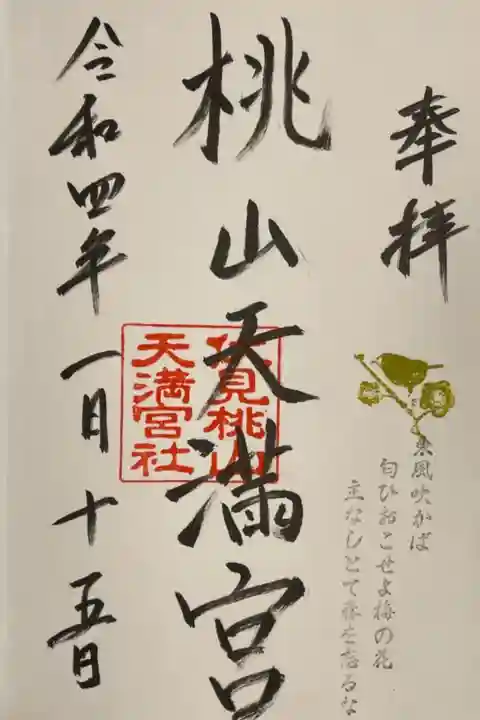 奉拝
東風吹かば
匂ひおこせよ梅の花
主なしとて春を忘るな
桃山天満宮
伏見桃山
天満宮社
令和四年一月十五日